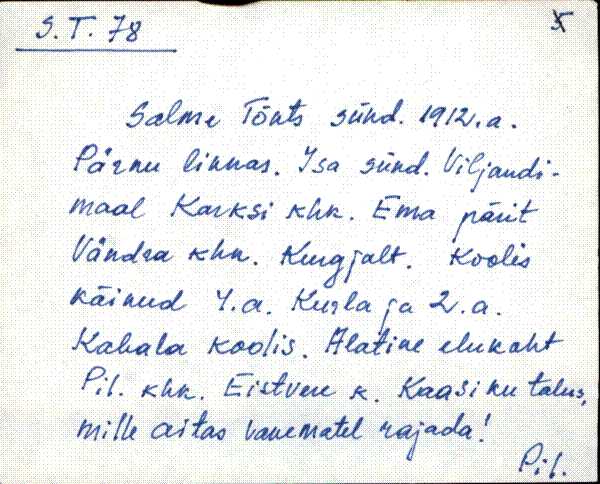 S. T. 78
5
Salme Tõnts sünd. 1912. a.
Pärnu linnas. Isa sünd. Viljandi-
maal Karksi khk. Ema pärit
Vändra khk. Kurgjalt. Koolis
käinud 4. a. Kurla ja 2. a.
Kabala koolis. Alatine elukoht
Pil. khk. Eistvere k. Kaasiku talus,
mille aitas vanematel rajada!
Pil.